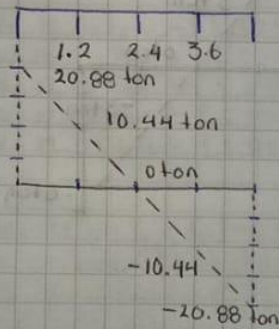 1.2 2.4 3.6
20.88 ton
10.44 ton
0 ton
-10.44
-20.88 Ton